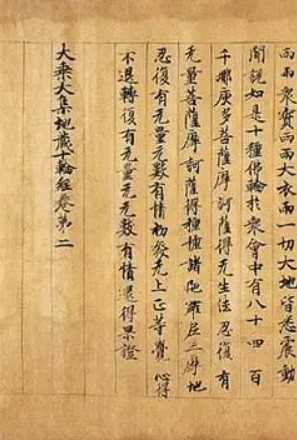 雨雨眾寶雨雨大衣雨一切大地皆悉震動
聞說如是十種佛輪於眾會中有八十四百
千那庾多菩薩摩訶薩得无生法忍復有
无量菩薩摩訶薩得種種諸陁羅尼三摩地
忍復有无量无數有情初發无上正等覺心得
不退轉復有无量无數有情還得果證
大乘大集地藏十輪經卷第二